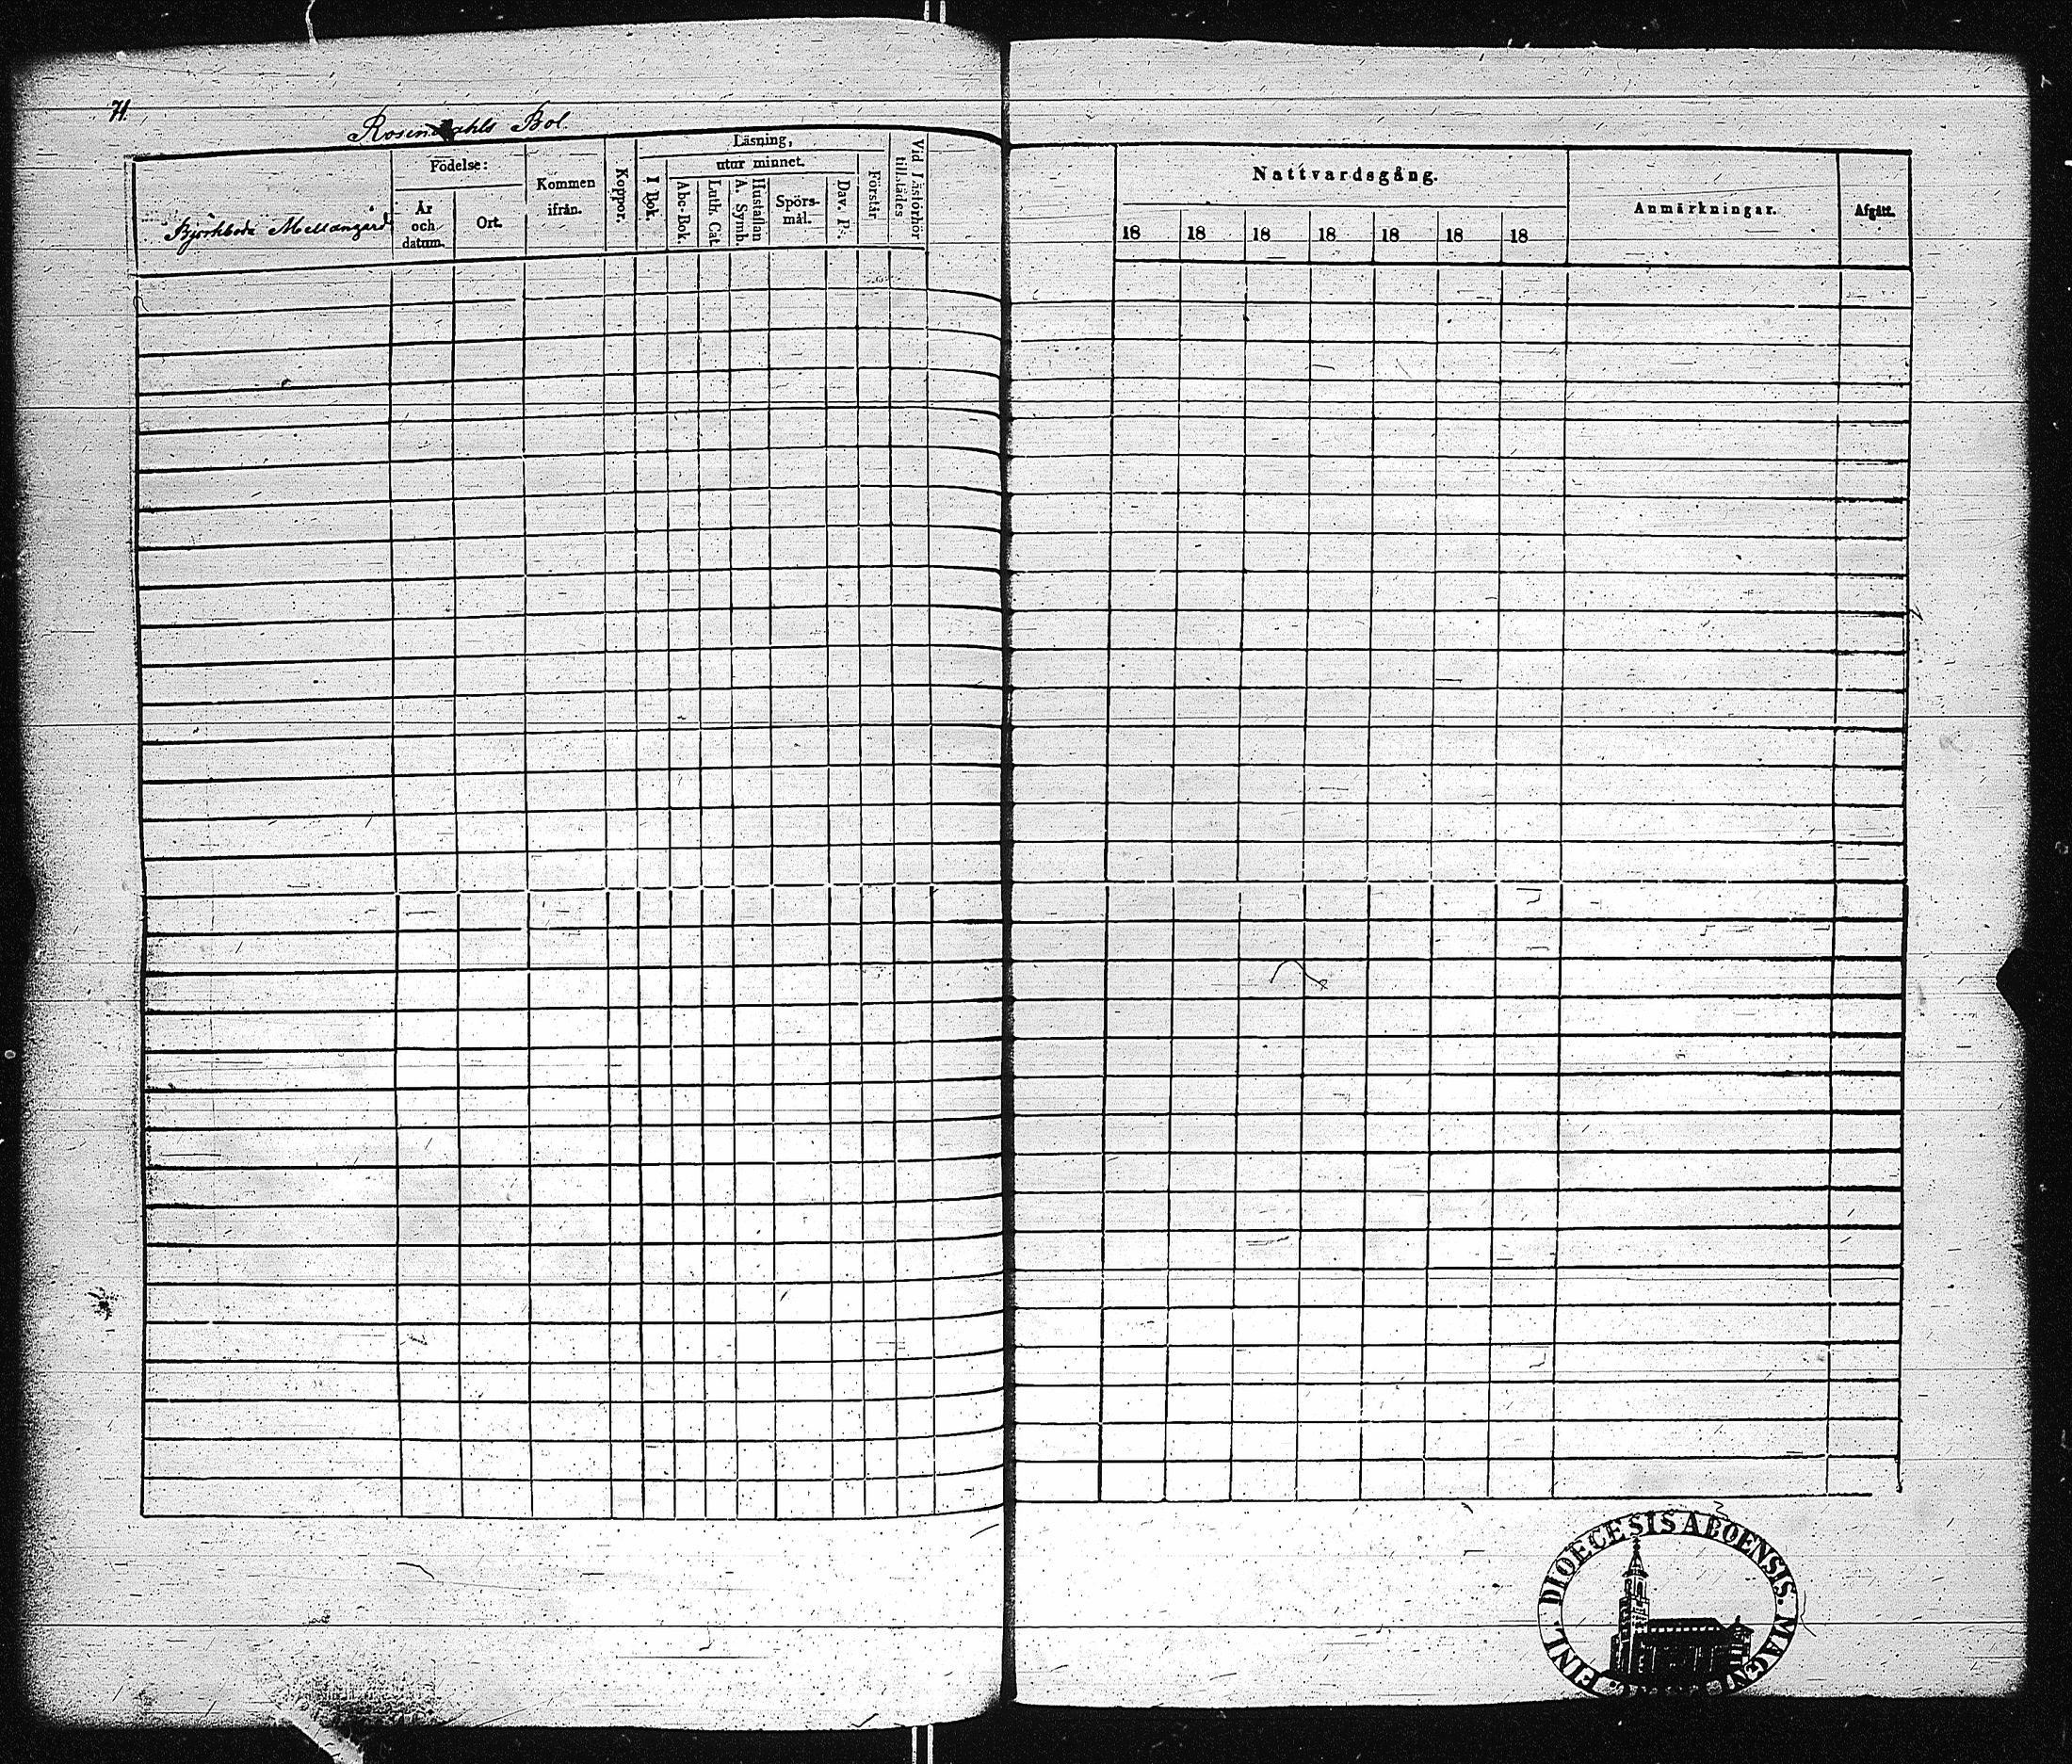 71.
Rosendahls Bol
Björkboda Mellangård
Födelse:
År
och
datum.
Ort.
Kommen
ifrån.
Koppor.
Läsning,
utur minnet.
I Bok.
Abc-Bok.
Luth. Cat.
A. Symb.
Hustaflan
Spörs-
mål.
Dav. Ps.
Förstår
Vid Läsförhör
tillstädes
Nattvardsgång.
18 18 18 18 18 18 18
Anmärkningar.
Afgått.
FINL. DIOECESIS ABOENSIS. MAGN.